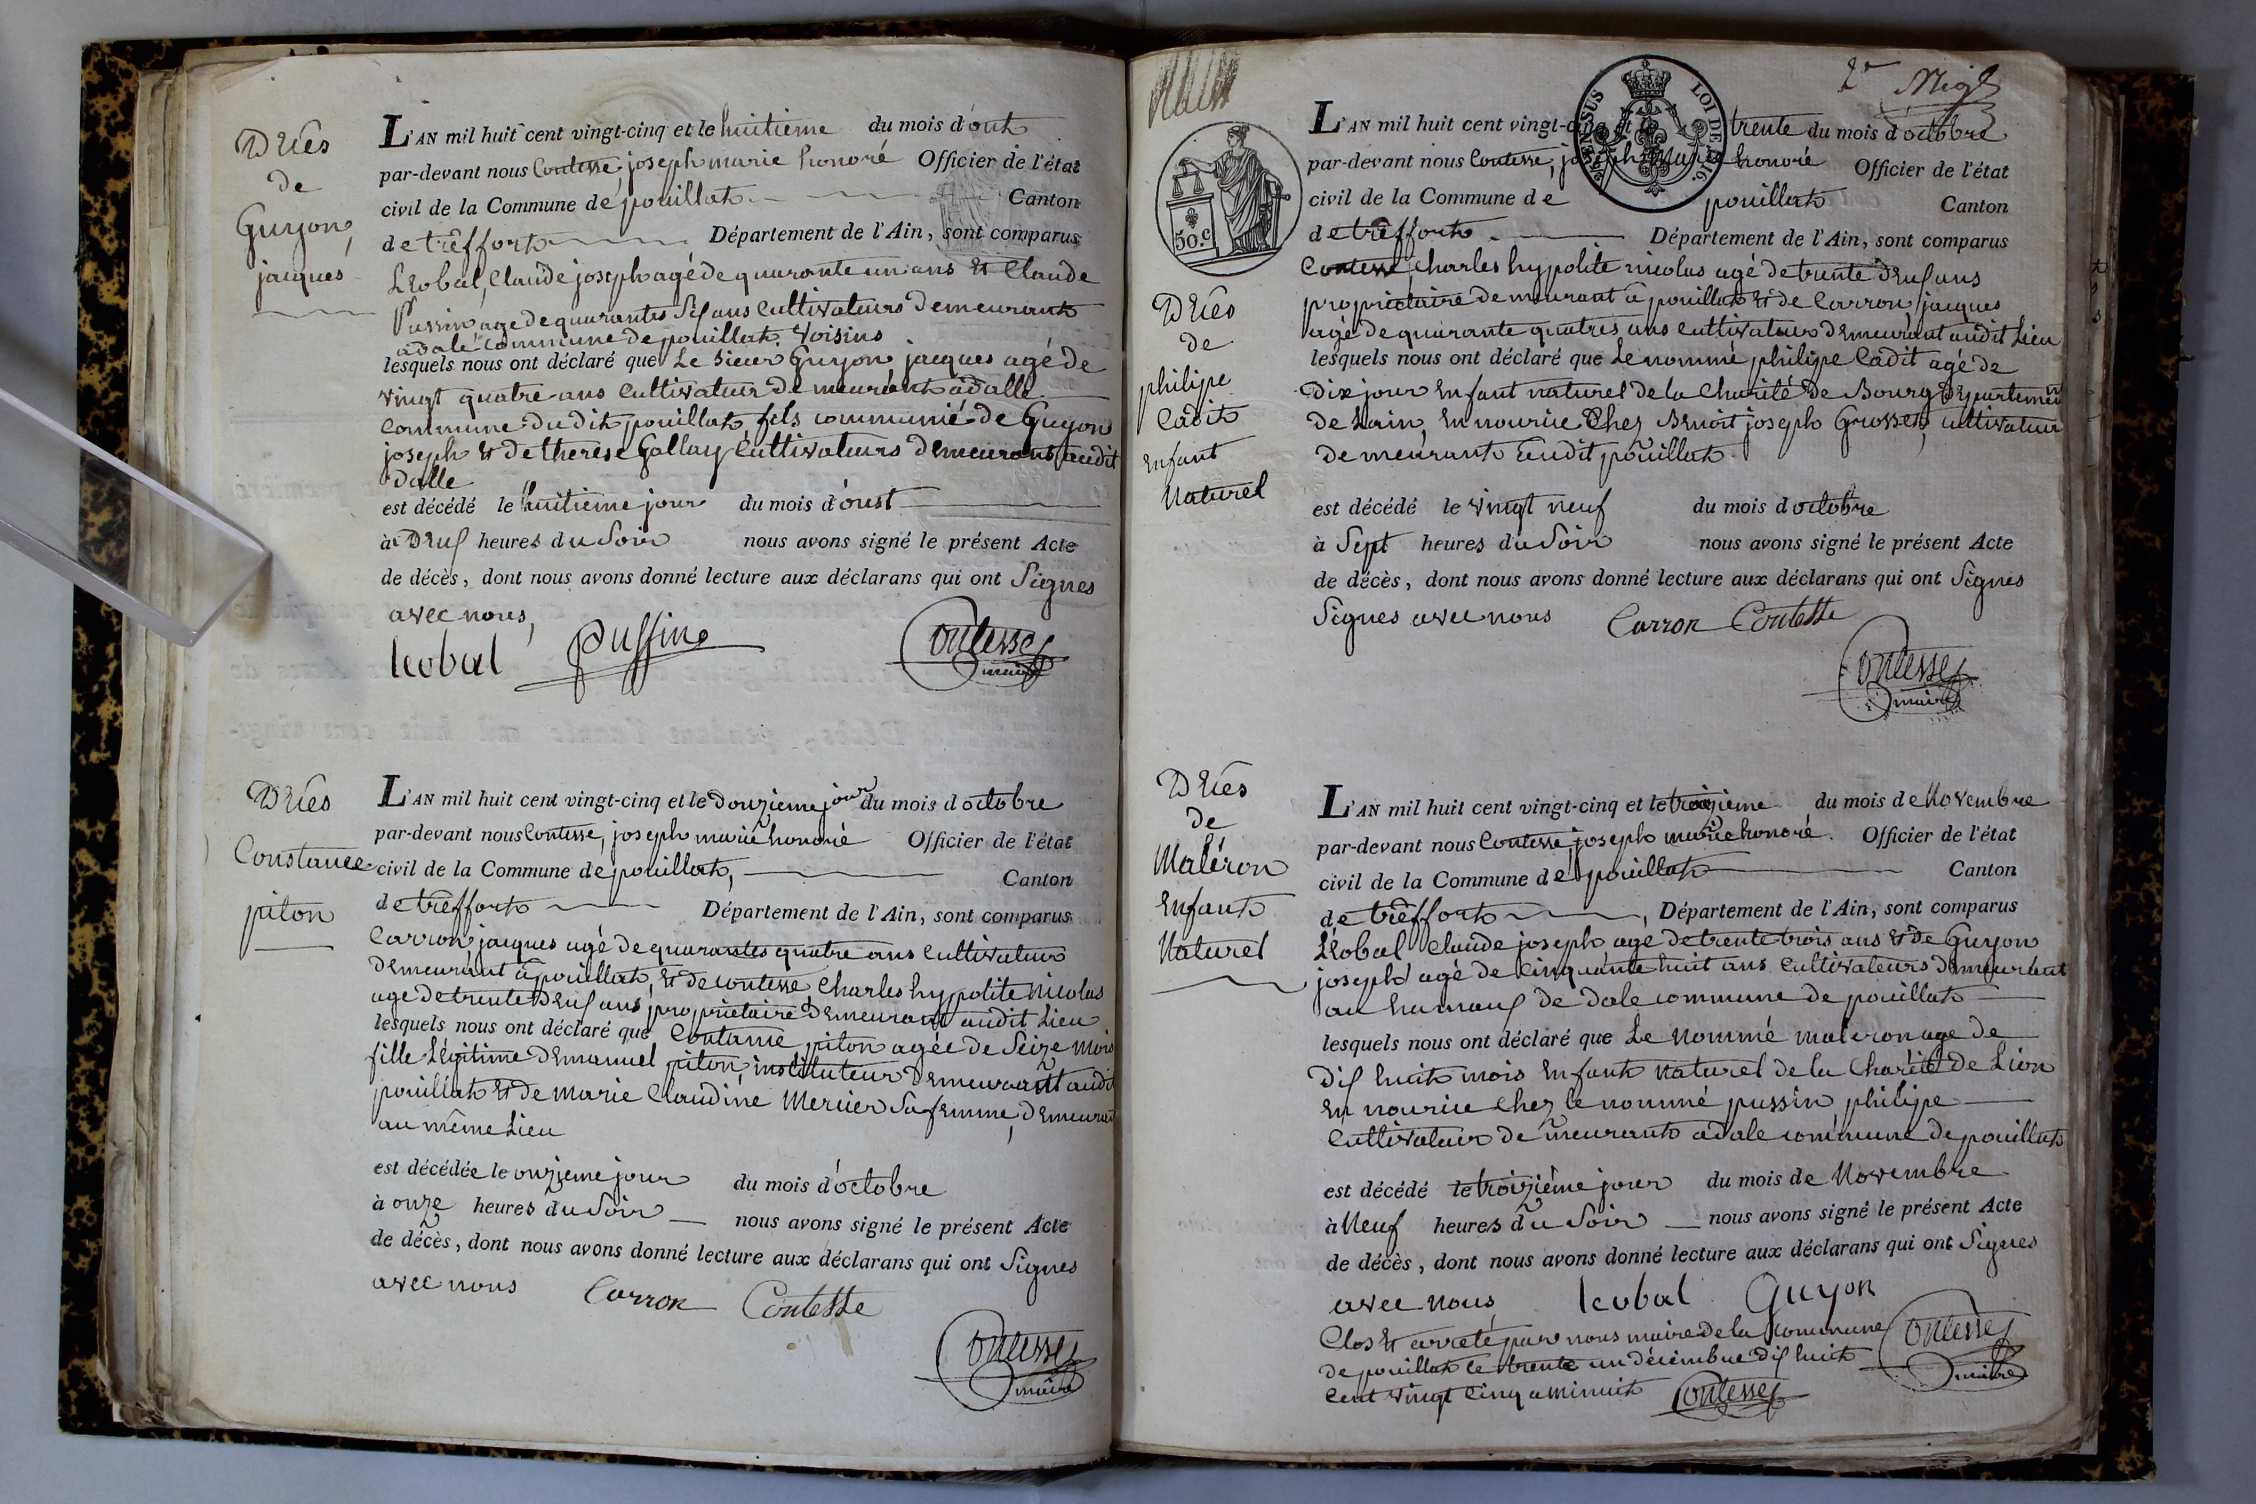 Décès
de
Guyon,
jacques
L'AN mil huit cent vingt-cinq et le huitieme du mois d'out
par-devant nous Contesse, joseph marie honoré Officier de l'état
civil de la Commune de pouillat Canton
de trêffort Département de l'Ain, sont comparus
Léobal, Claude joseph agé de quarante un ans et Claude
Pussin, age de quarantes six ans cultivateurs demeurant
a dale commune de pouillat voisins
lesquels nous ont déclaré que Le Sieur Guyon jacques agé de
vingt quatre ans cultivateur demeurant à dalle
commune dudit pouillat, fils communié de Guyon
joseph et de therese Gallay cultivateurs demeurant audit
dalle
est décédé le huitieme jour du mois d'oust
à deux heures du Soir nous avons signé le présent Acte
de décès, dont nous avons donné lecture aux déclarans qui ont Signes
avec nous,
Leobal Pussin Contesse
maire
Décès
Constance
piton
L'AN mil huit cent vingt-cinq et le douzieme jour du mois d octobre
par-devant nous Contesse, joseph marie honoré Officier de l'état
civil de la Commune de pouillat, Canton
de trêffort Département de l'Ain, sont comparus
Carron jacques agé de quarantes quatre ans cultivateur
demeurant à pouillat, et de contesse Charles hypolite Nicolas
age de trente deux ans, propriétaire demeurant audit Lieu
lesquels nous ont déclaré que Contance piton agée de Seize mois
fille Légitime demanuel piton, instituteur demeurant audit
pouillat et de marie Claudine Mercier Sa femme, demeurant
au même Lieu
est décédée le onzieme jour du mois d'octobre
à onze heures du Soir nous avons signé le présent Acte
de décès, dont nous avons donné lecture aux déclarans qui ont Signes
avec nous Carron Contesse
Contesse
maire
2e
CENSUS LOI DE 1816.
50.c
Décès
de
philipe
Cadit
Enfant
Naturel
L'AN mil huit cent vingt-cinq et le trente du mois d'octobre
par-devant nous Contesse, joseph Marie honoré Officier de l'état
civil de la Commune de pouillat Canton
de trêffort Département de l'Ain, sont comparus
Contesse, Charles hypolite nicolas agé de trente deux ans
propriétaire demeurant à pouillat et de Carron, jacques
agé de quarante quatres ans cultivateur demeurant audit Lieu
lesquels nous ont déclaré que Le nommé philipe Cadit agé de
dix jour Enfant naturel de la Charité de Bourg Département
de Lain, En nourice Chez Benoit joseph Grosset, cultivateur
demeurant audit pouillat
est décédé le vingt neuf du mois d octobre
à Sept heures du Soir nous avons signé le présent Acte
de décès, dont nous avons donné lecture aux déclarans qui ont Signes
Signes avec nous Carron Contesse
Contesse
maire
Décès
de
Maléron
Enfant
Naturel
L'AN mil huit cent vingt-cinq et le troizieme du mois de Novembre
par-devant nous Contesse, joseph marie honoré Officier de l'état
civil de la Commune de pouillat Canton
de trêffort, Département de l'Ain, sont comparus
Léobal Claude joseph agé de trente trois ans et de Guyon
joseph agé de Cinquante huit ans cultivateurs demeurant
au hamaux de dale commune de pouillat
lesquels nous ont déclaré que Le Nommé maleron age de
dix huit mois Enfant Naturel de la Charité de Lion
En nourice Chez le nommé pussin, philipe
Cultivateur demeurant a dale commune de pouillat
est décédé le troizième jour du mois de Novembre
à Neuf heures du Soir nous avons signé le présent Acte
de décès, dont nous avons donné lecture aux déclarans qui ont Signes
avec nous Leobal Guyon
Clos et arreté par nous maire de la commune Contesse
de pouillat le trente un décembre dix huit maire
Cent vingt Cinq a minuit Contesse